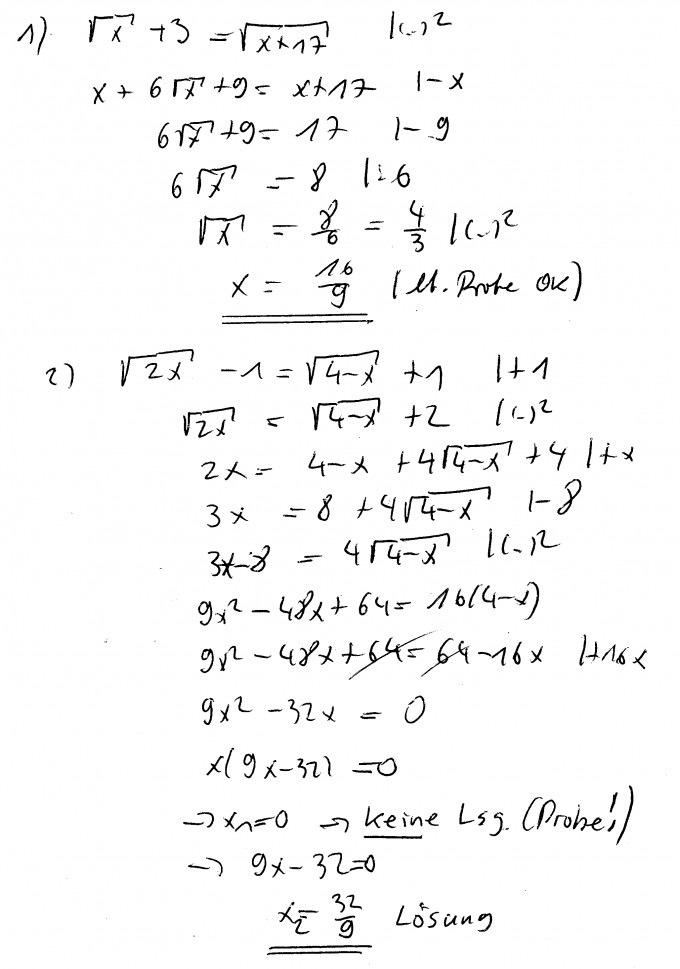 1) √x + 3 = √(x+17) |(..)²
x + 6√x + 9 = x+17 |-x
6√x + 9 = 17 |-9
6√x = 8 |:6
√x = 8/6 = 4/3 |(..)²
x = 16/9 (lt. Probe OK)
2) √(2x) - 1 = √(4-x) + 1 |+1
√(2x) = √(4-x) + 2 |(..)²
2x = 4-x + 4√(4-x) + 4 |+x
3x = 8 + 4√(4-x) |-8
3x-8 = 4√(4-x) |(..)²
9x² - 48x + 64 = 16(4-x)
9x² - 48x + 64 = 64 - 16x |+16x
9x² - 32x = 0
x(9x-32) = 0
→ x₁=0 → keine Lsg. (Probe!)
→ 9x-32=0
x₂ = 32/9 Lösung